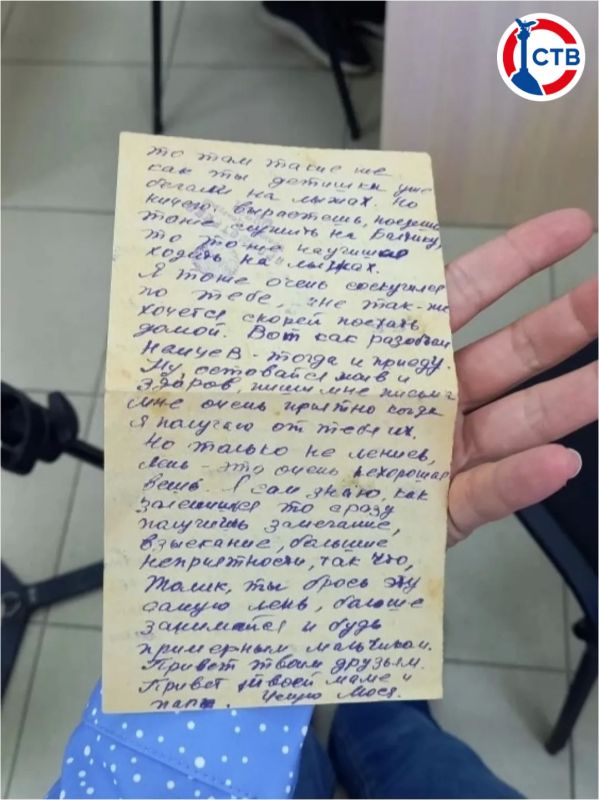 СТВ
то там такие же
как ты детишки уже
бегали на лыжах. Но
ничего вырастешь, поедешь
тоже служить на Балтику,
то тоже научишься
ходить на лыжах.
Я тоже очень соскучился
по тебе, мне так-же
хочется скорей поехать
домой. Вот как разобьем
немцев - тогда и приеду.
Ну, оставайся жив и
здоров, пиши мне письма
мне очень приятно когда
я получаю от тебя их.
Но только не ленись,
лень - это очень нехорошая
вещь. Я сам знаю, как
заленишся то сразу
получишь замечание,
взыскание, большие
неприятности, так что,
Толик, ты брось эту
самую лень, больше
занимайся и будь
примерным мальчиком.
Привет твоим друзьям.
Привет твоей маме и
папе.